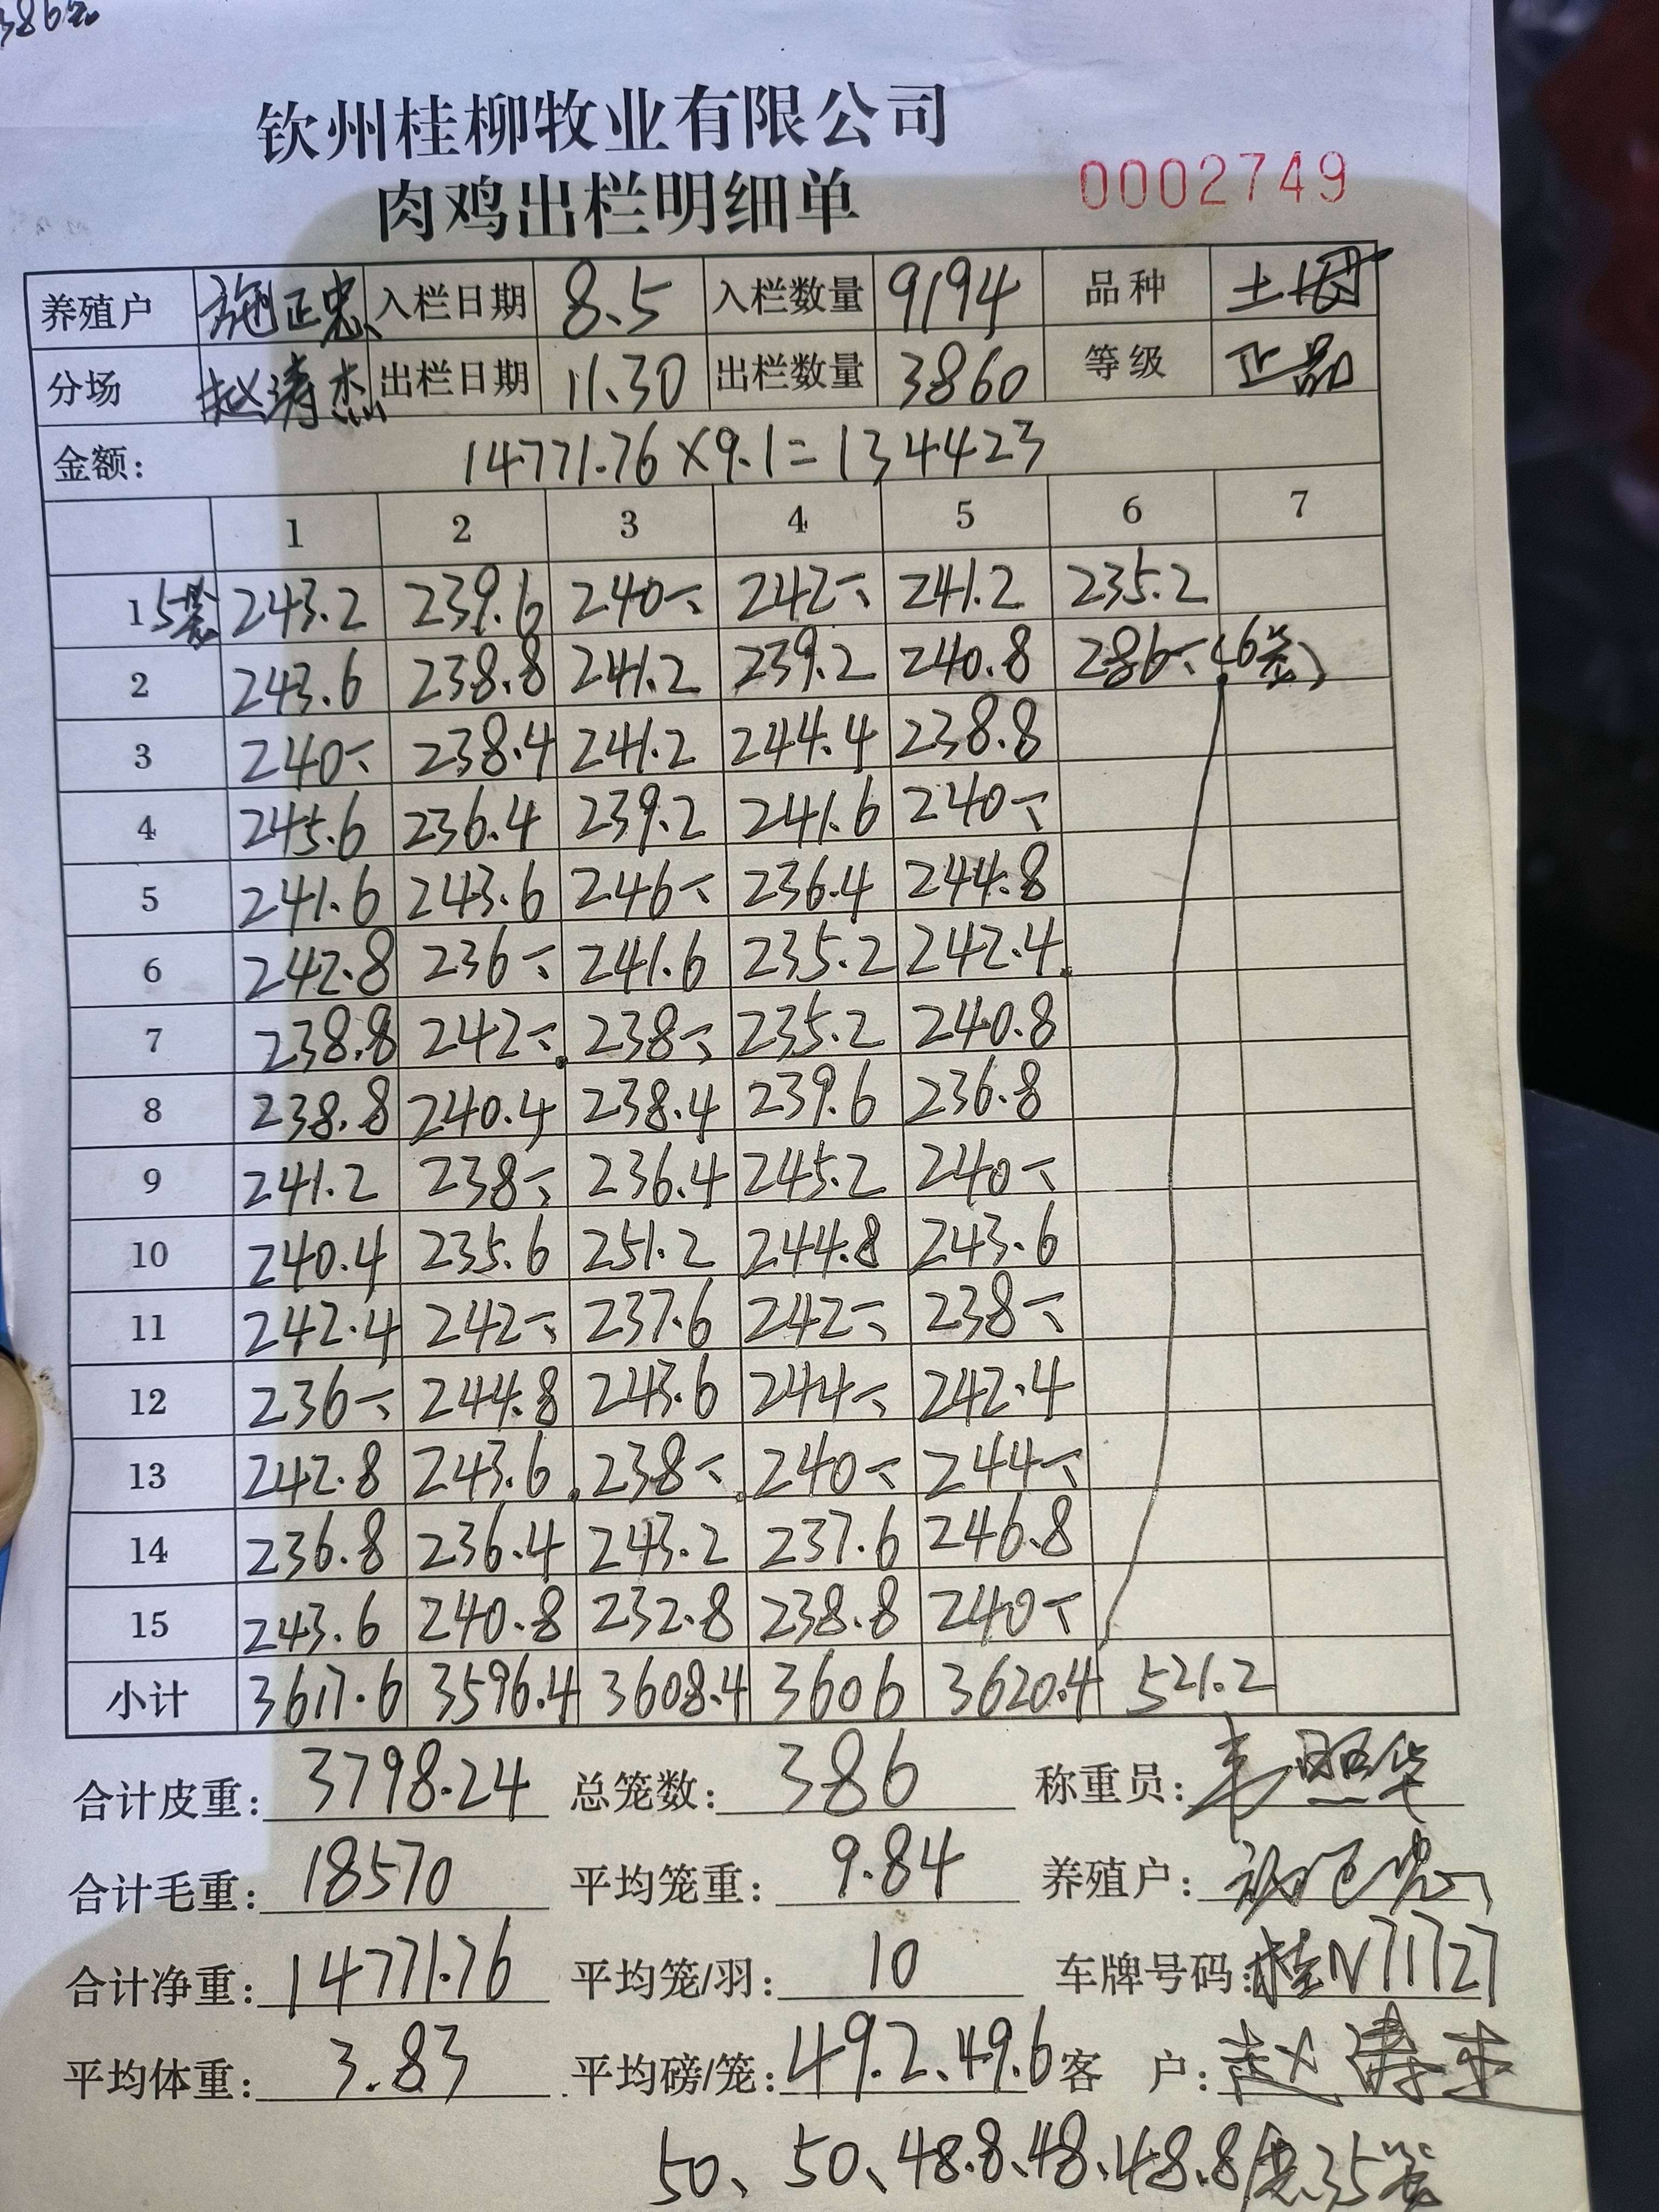 386笼
钦州桂柳牧业有限公司
肉鸡出栏明细单 0002749
养殖户 施正忠 入栏日期 8.5 入栏数量 9194 品种 土
分场 赵涛杰 出栏日期 11.30 出栏数量 3860 等级 正品
金额: 14771.76×9.1=134423
1 2 3 4 5 6 7
1 5笼 243.2 239.6 240-、 242-、 241.2 235.2
2 243.6 238.8 241.2 239.2 240.8 286-、(6笼)
3 240-、 238.4 241.2 244.4 238.8
4 245.6 236.4 239.2 241.6 240-、
5 241.6 243.6 246-、 236.4 244.8
6 242.8 236-、 241.6 235.2 242.4
7 238.8 242-、 238-、 235.2 240.8
8 238.8 240.4 238.4 239.6 236.8
9 241.2 238-、 236.4 245.2 240-、
10 240.4 235.6 251.2 244.8 243.6
11 242.4 242-、 237.6 242-、 238-、
12 236-、 244.8 243.6 244-、 242.4
13 242.8 243.6 238-、 240-、 244-、
14 236.8 236.4 243.2 237.6 246.8
15 243.6 240.8 232.8 238.8 240-、
小计 3617.6 3596.4 3608.4 3606 3620.4 521.2
合计皮重: 3798.24 总笼数: 386 称重员: 韦照华
合计毛重: 18570 平均笼重: 9.84 养殖户:
合计净重: 14771.76 平均笼/羽: 10 车牌号码: 桂N71727
平均体重: 3.83 平均磅/笼: 49.2、49.6 客 户: 赵涛杰
50、50、48.8、48、48.8/共35笼